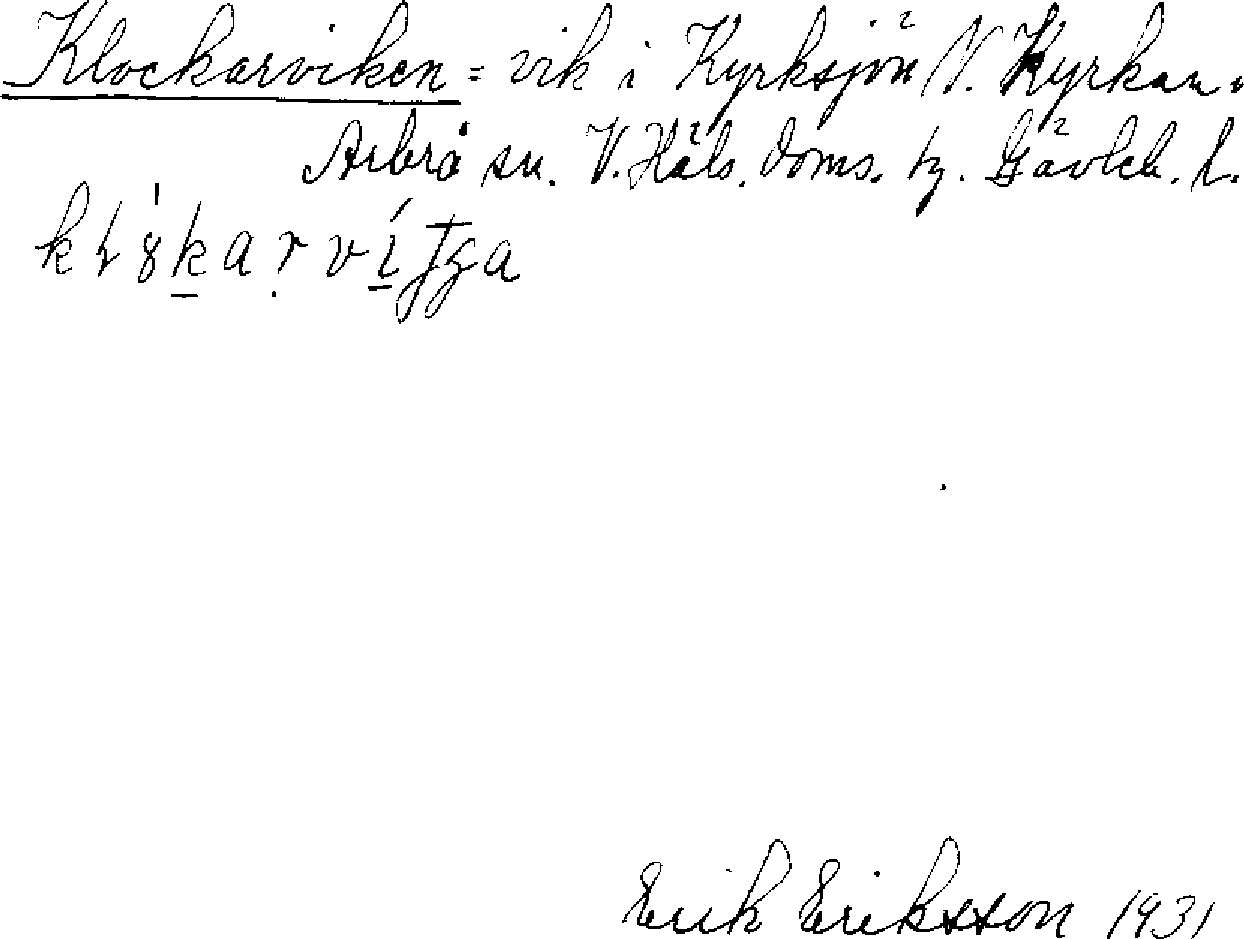 Klockarviken = vik i Kyrksjön N. Kyrkan.
Arbrå sn. V. Häls. doms. tg. Gävleb. l.
Erik Eriksson 1931